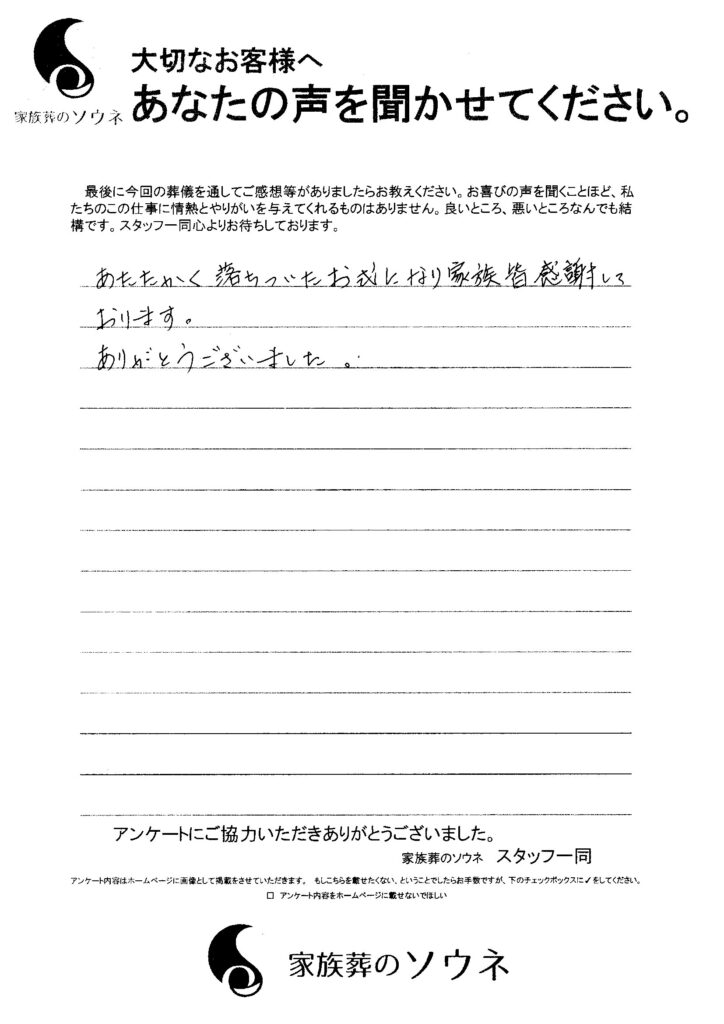 大切なお客様へ
家族葬のソウネ
あなたの声を聞かせてください。
最後に今回の葬儀を通してご感想等がありましたらお教えください。お喜びの声を聞くことほど、私
たちのこの仕事に情熱とやりがいを与えてくれるものはありません。良いところ、悪いところなんでも結
構です。スタッフ一同心よりお待ちしております。
あたたかく落ちついたお式になり家族皆感謝して
おります。
ありがとうございました。
アンケートにご協力いただきありがとうございました。
家族葬のソウネ スタッフ一同
アンケート内容はホームページに画像として掲載をさせていただきます。 もしこちらを載せたくない、ということでしたらお手数ですが、下のチェックボックスに✓をしてください。
□ アンケート内容をホームページに載せないでほしい
家族葬のソウネ